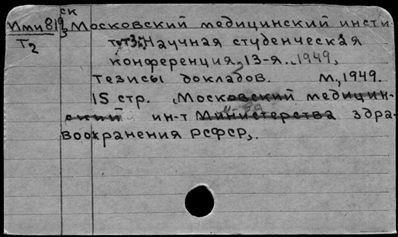 ск
Ими819 Московский медицинский инсти
Т2 тут. Научная студенческая
конференция, 13-я. 1949.
Тезисы докладов. М., 1949.
15 стр. Московский медицин-
ский ин-т Министерства здра-
воохранения РСФСР.